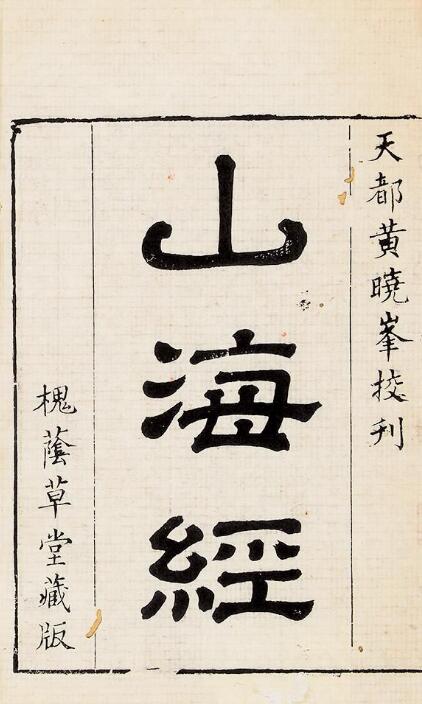 天都黄曉峯挍刊
山海經
槐蔭草堂藏版